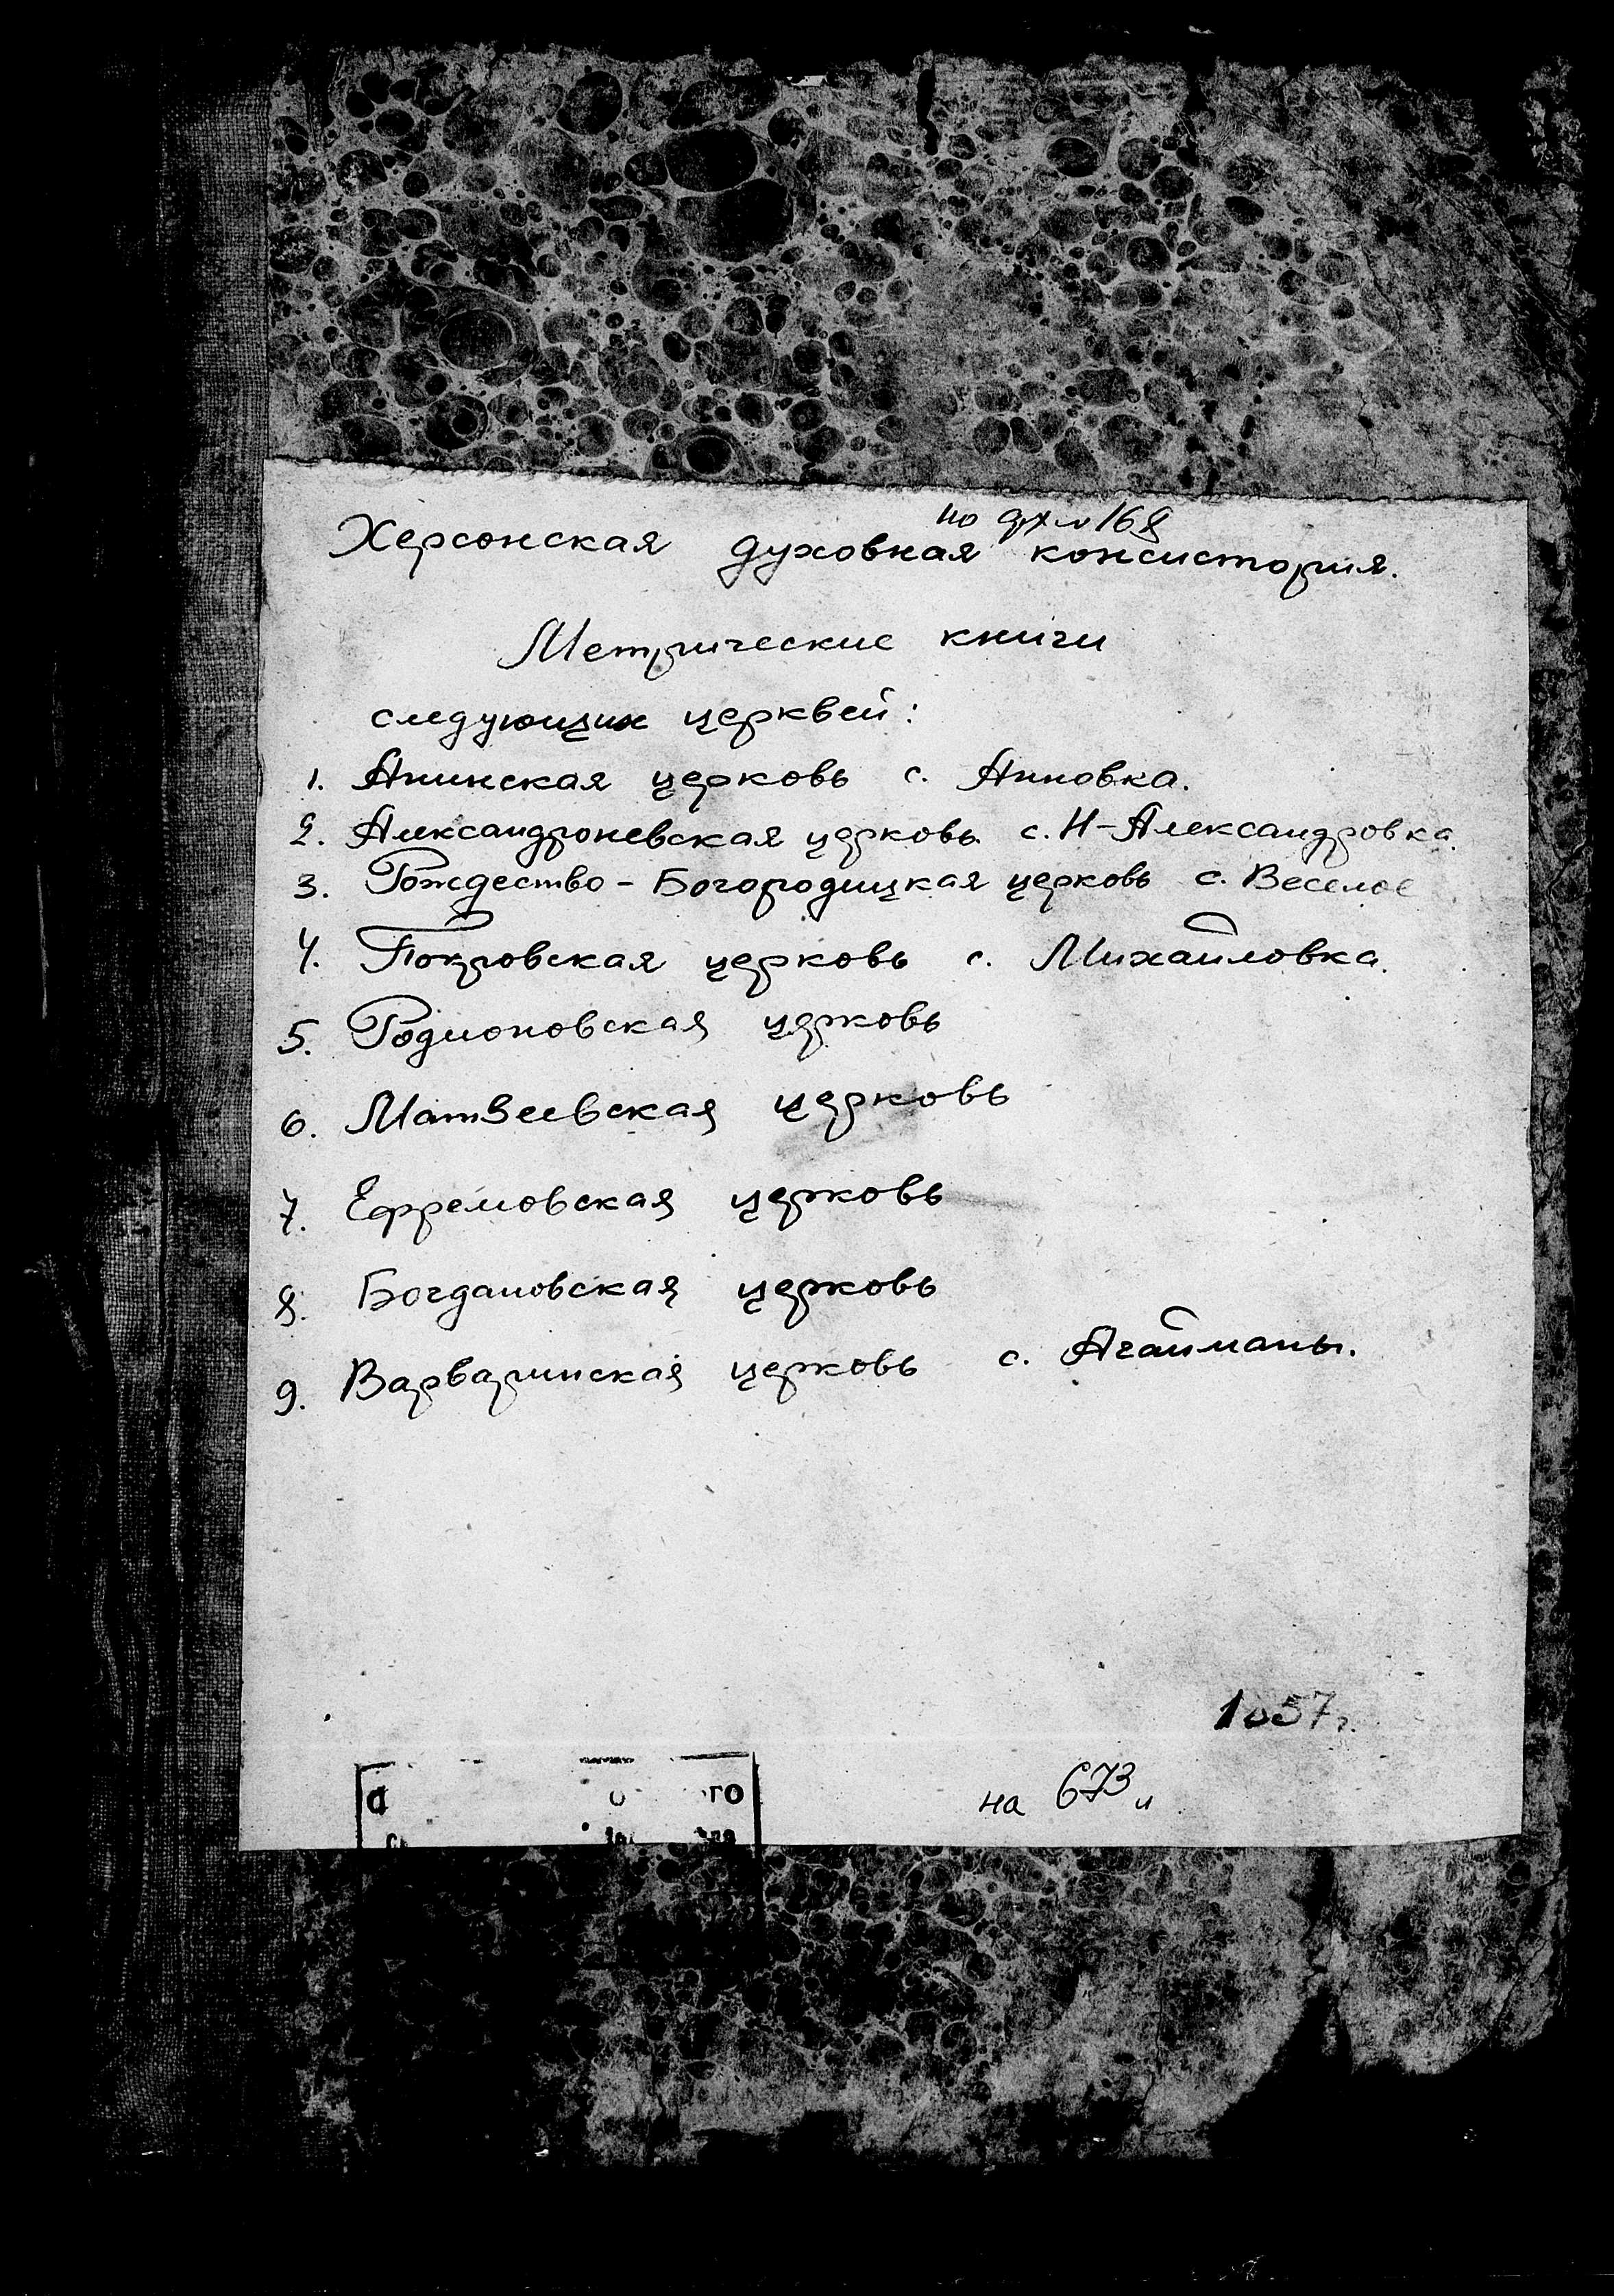 по 168
Херсонская духовная консистория.
Метрические книги
следующих церквей:
1. Анинская церковь с. Анновка.
2. Александроневская церковь с. Н-Александровка.
3. Рождество-Богородицкая церковь с. Веселое
4. Покровская церковь с. Михайловка.
5. Родионовская церковь
6. Матвеевская церковь
7. Ефремовская церковь
8. Богдановская церковь
9. Варваринская церковь с. Агайманы.
на 673 л